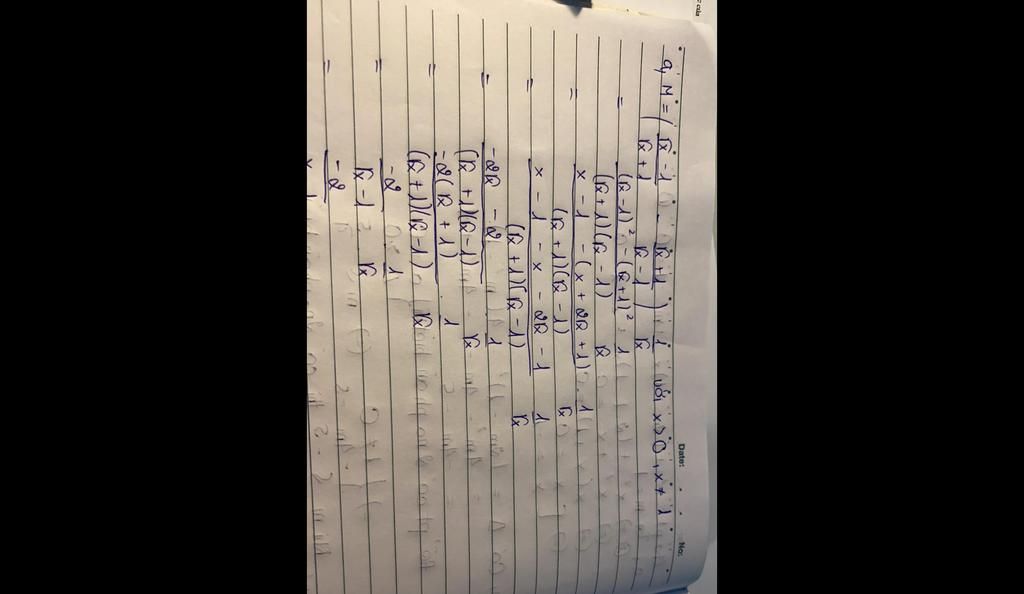 Date: No:
a, M = ( (√x - 1)/(√x + 1) - (√x + 1)/(√x - 1) ) : 1/√x với x > 0, x ≠ 1
= ((√x - 1)² - (√x + 1)²)/((√x + 1)(√x - 1)) : 1/√x
= (x - 1 - (x + 2√x + 1))/((√x + 1)(√x - 1)) : 1/√x
= (x - 1 - x - 2√x - 1)/((√x + 1)(√x - 1)) . 1/√x
= (-2√x - 2)/((√x + 1)(√x - 1)) . 1/√x
= (-2(√x + 1))/((√x + 1)(√x - 1)) . 1/√x
= -2/(√x - 1) . 1/√x
= -2/